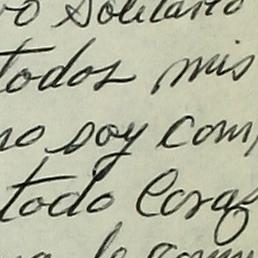 vo solitario
todos mis
no soy com
todo Coraz